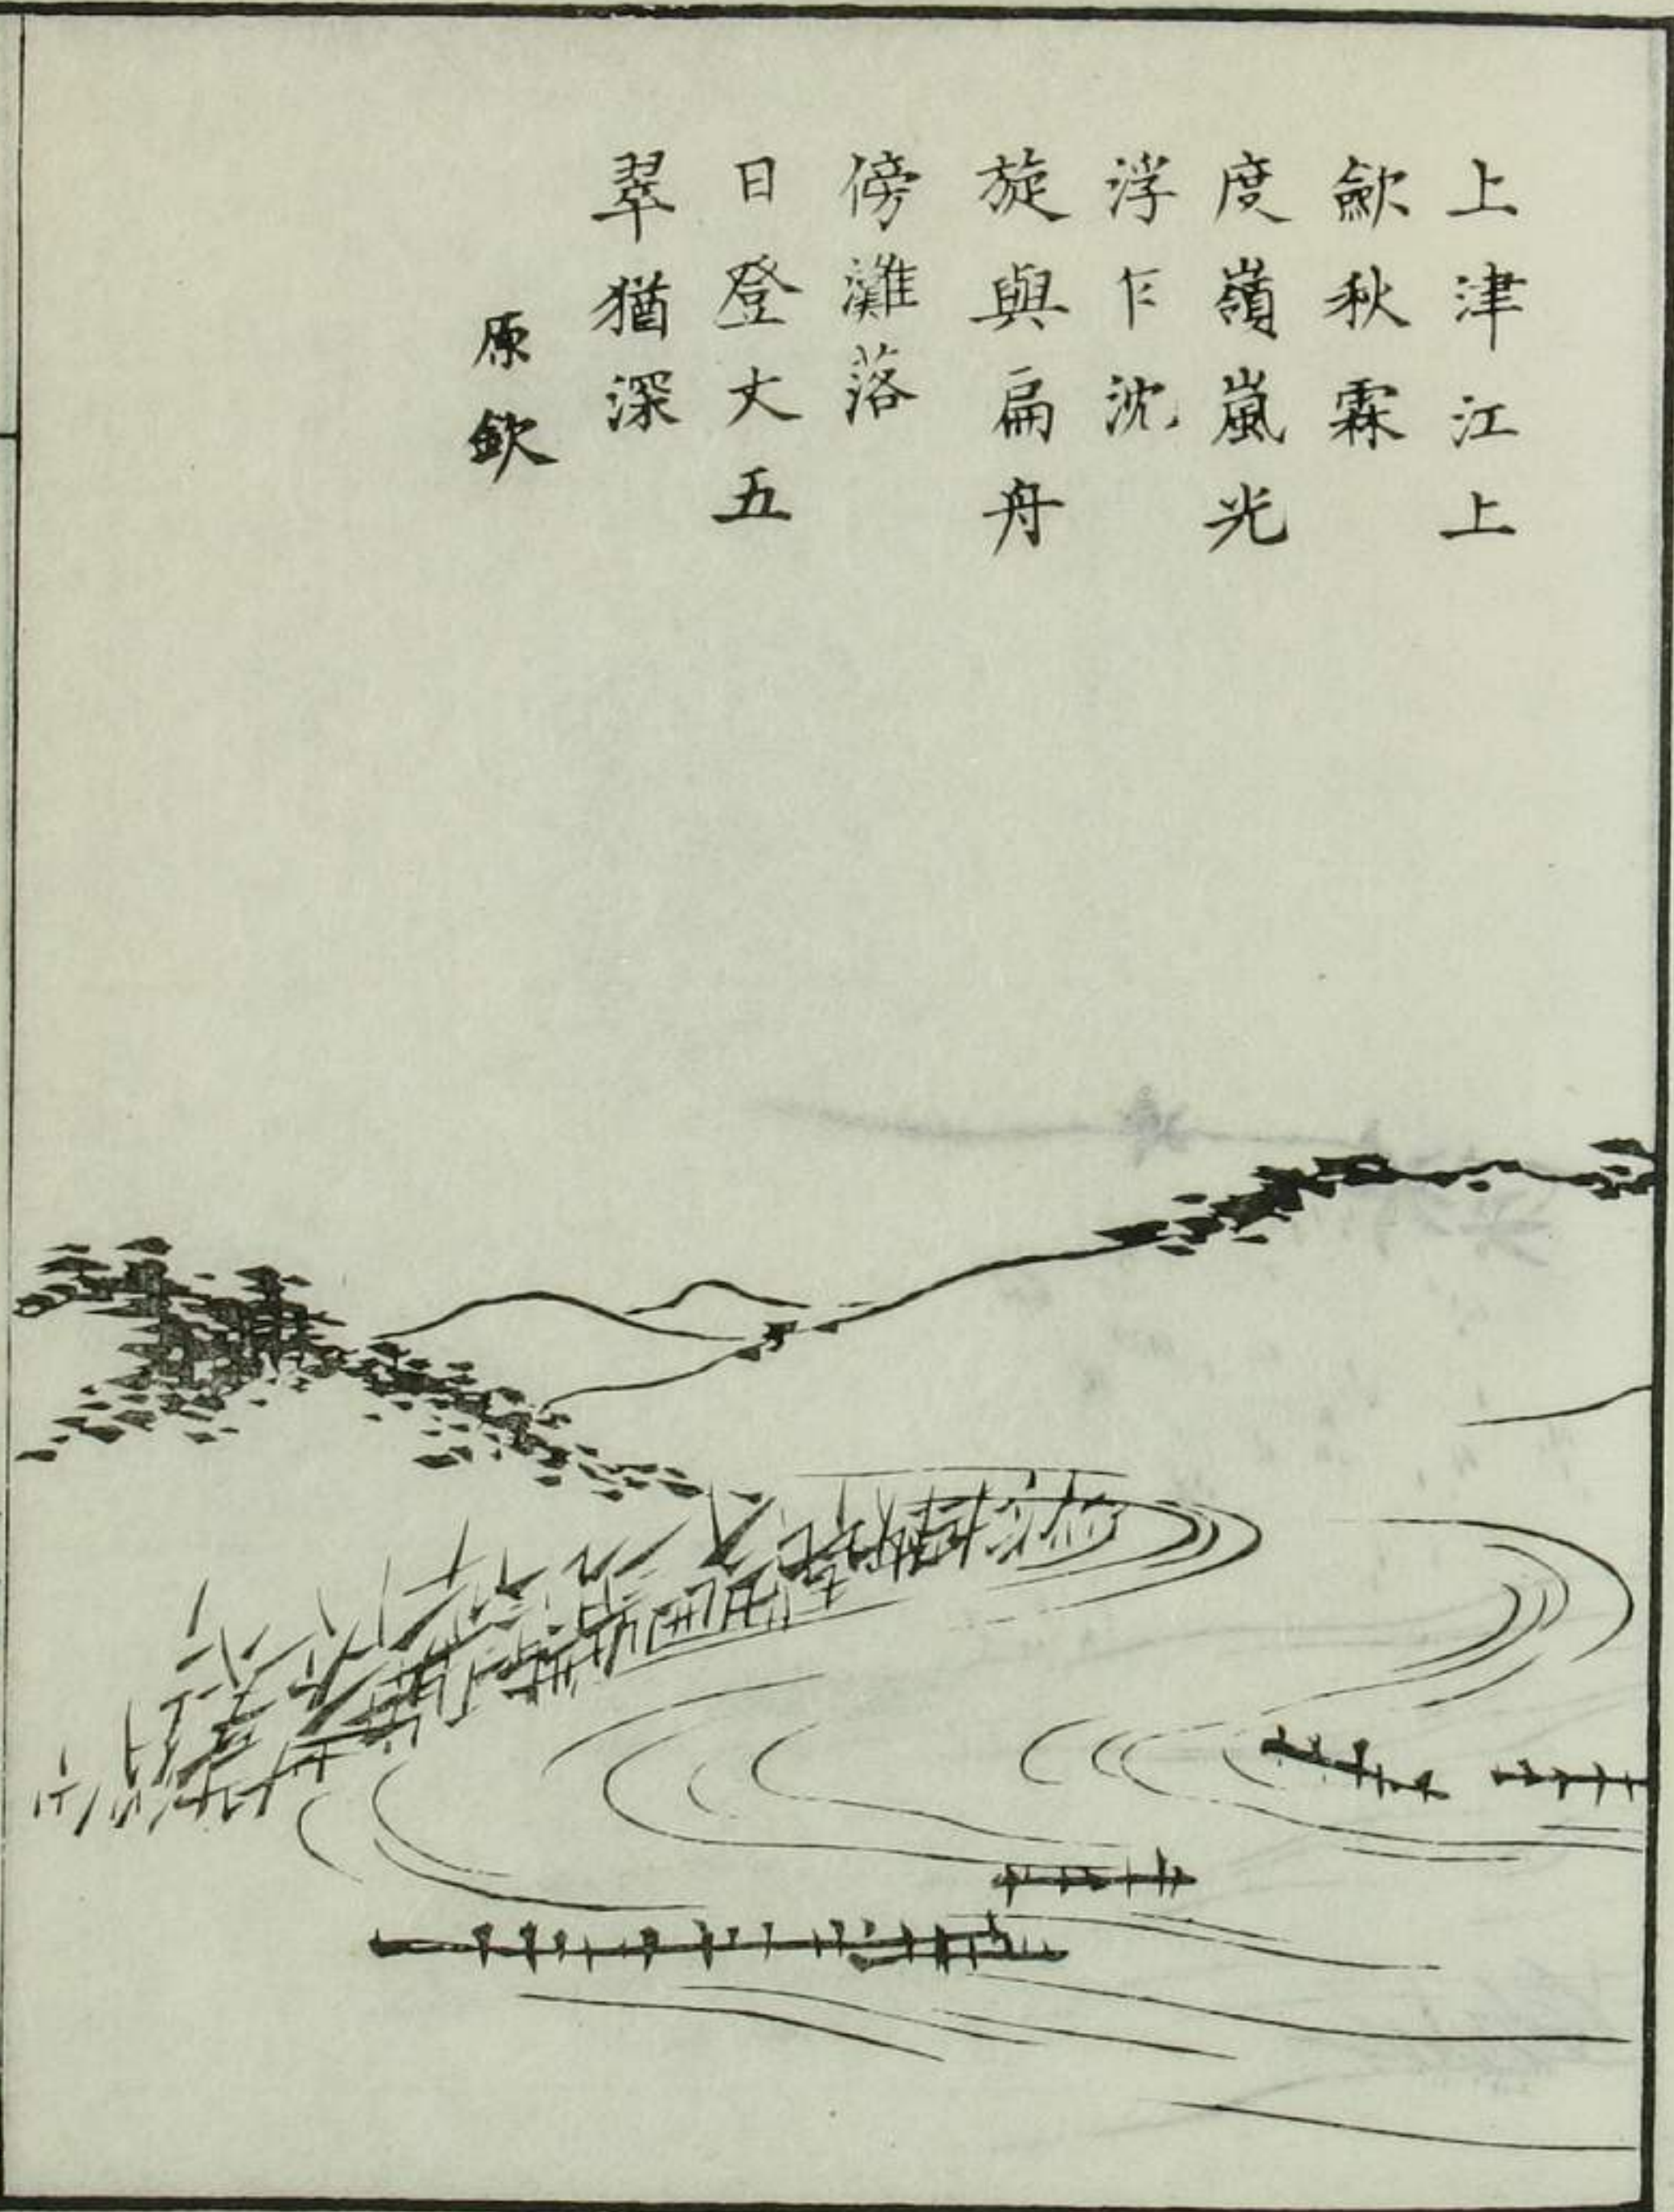 上津江上
歛秋霖
度嶺嵐光
浮乍沈
旋與扁舟
傍灘落
日登丈五
翠猶深
原欽